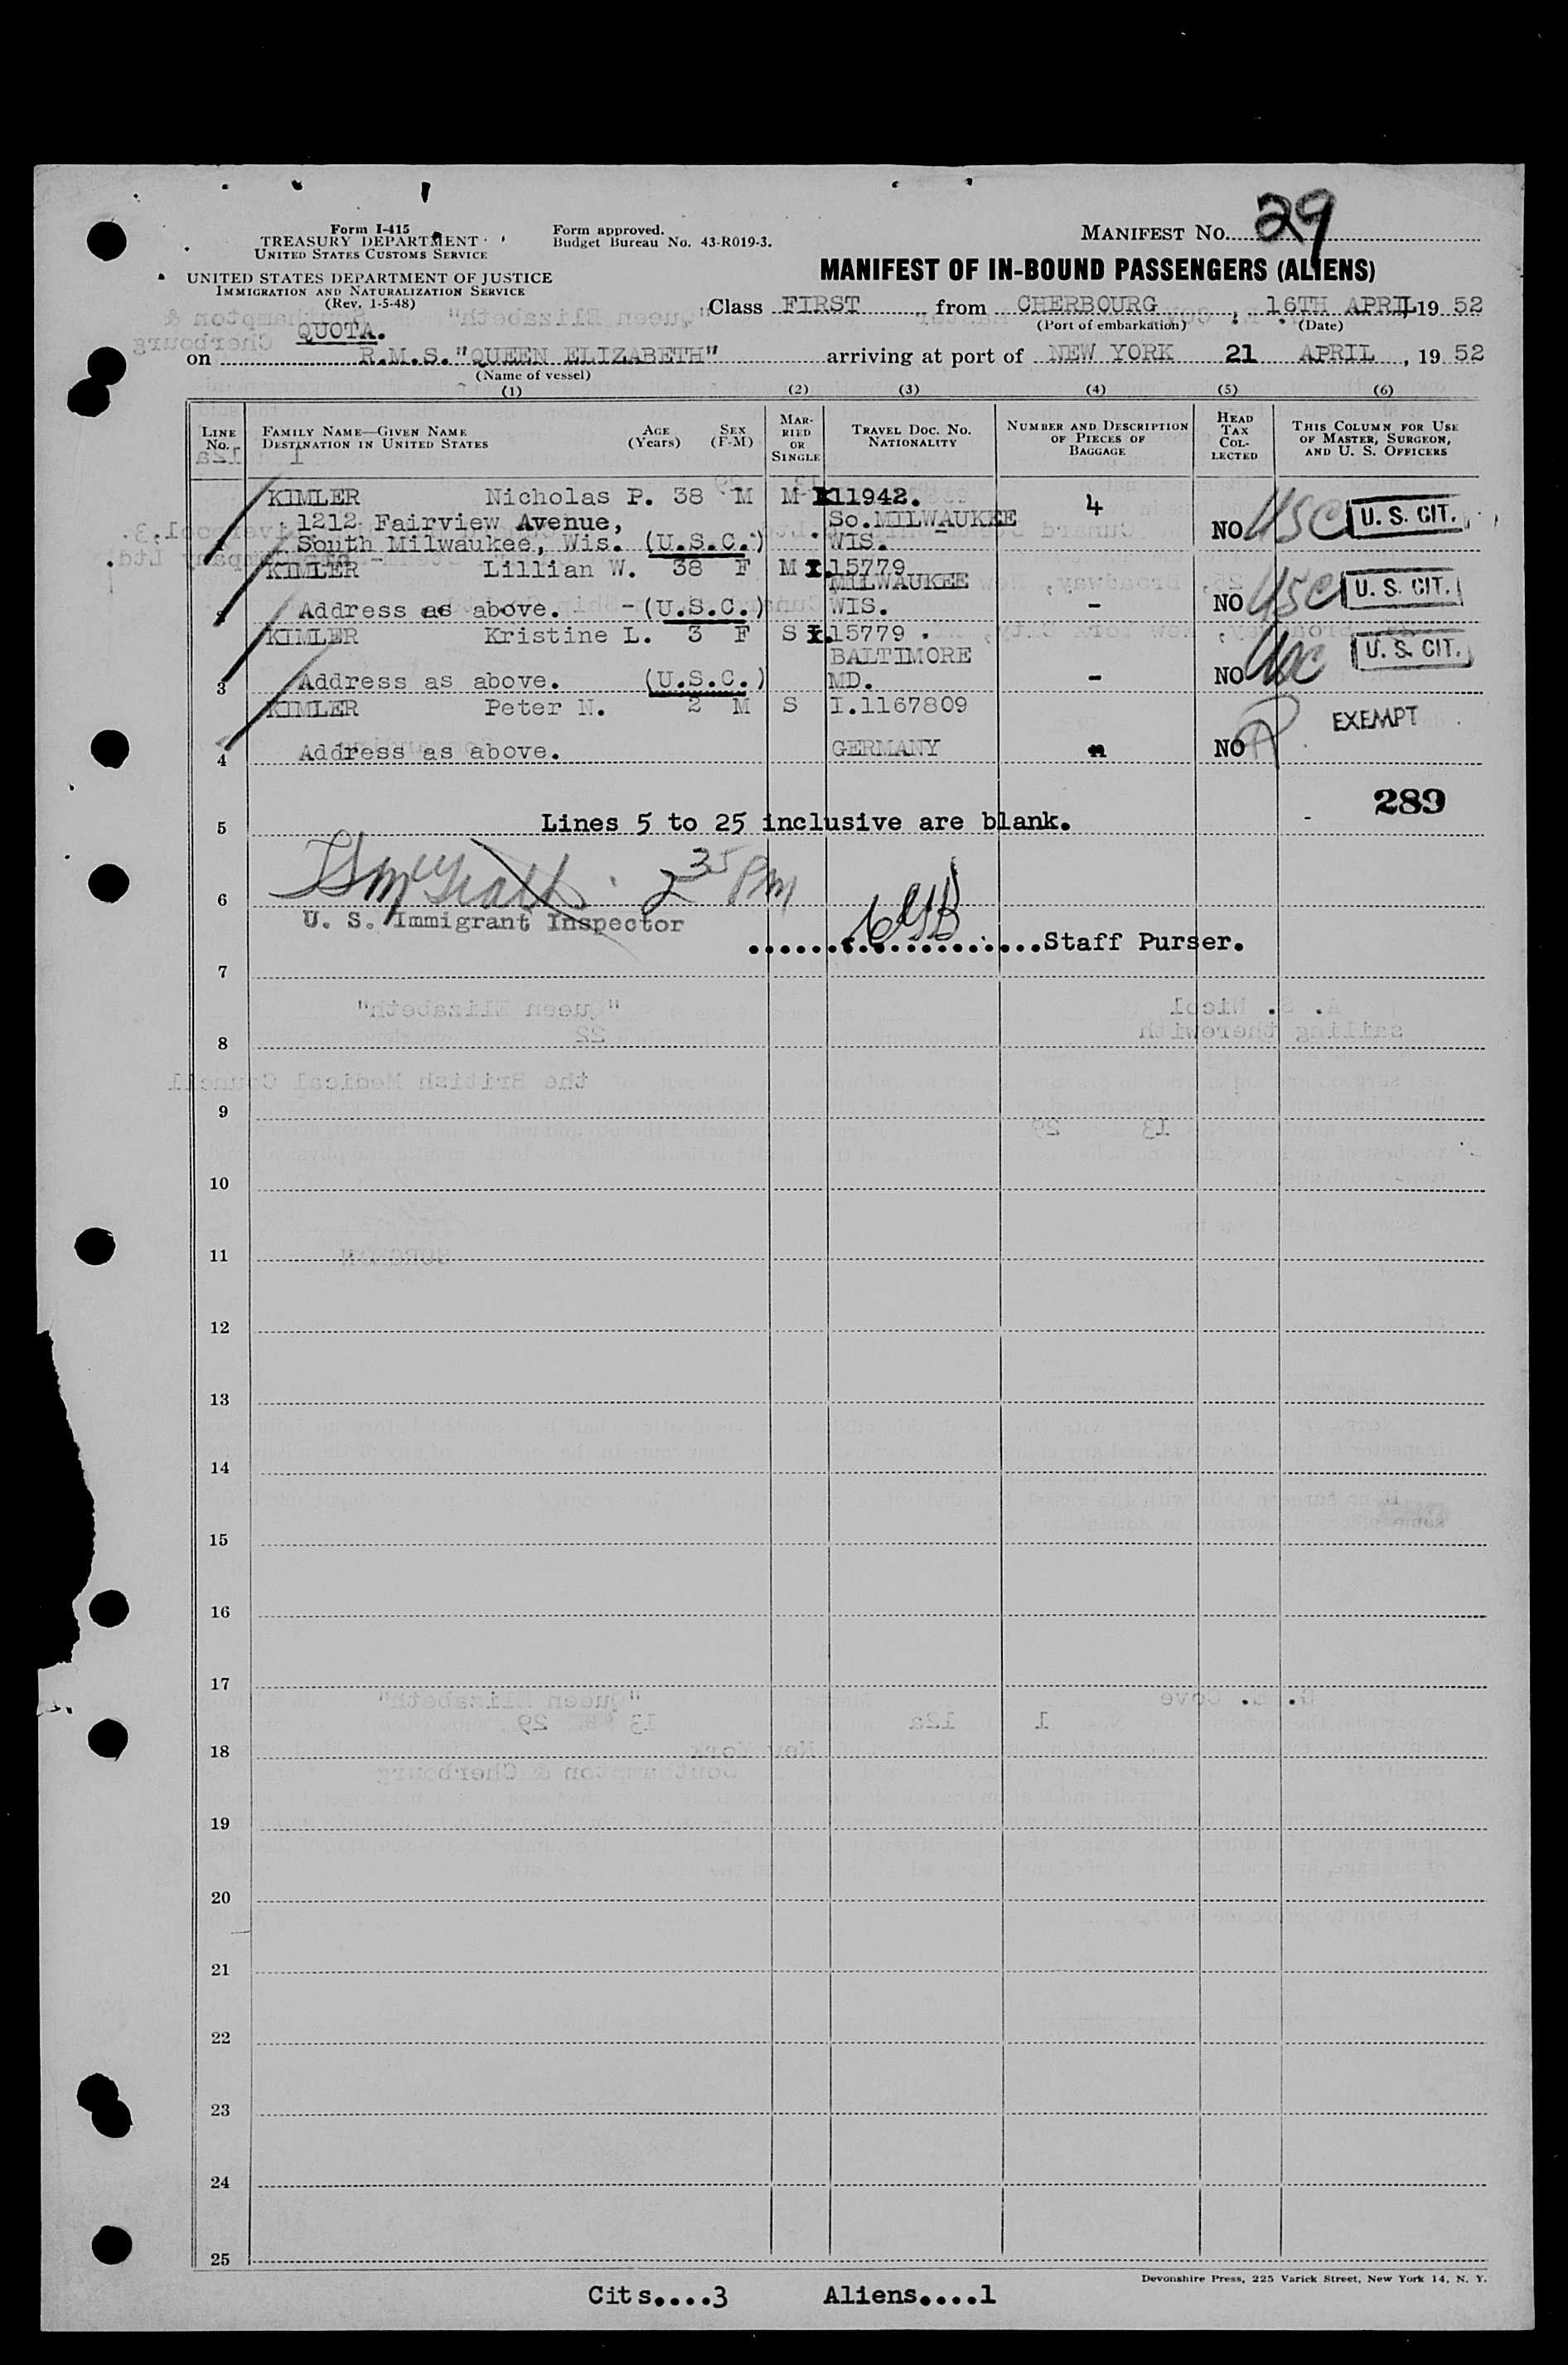 Form I-415
TREASURY DEPARTMENT
UNITED STATES CUSTOMS SERVICE
UNITED STATES DEPARTMENT OF JUSTICE
IMMIGRATION AND NATURALIZATION SERVICE
(Rev. 1-5-48)
Form approved.
Budget Bureau No. 43-R019-3.
MANIFEST NO. 29
MANIFEST OF IN-BOUND PASSENGERS (ALIENS)
Class FIRST from CHERBOURG, 16TH APRIL, 19 52
(Port of embarkation) (Date)
QUOTA.
on R.M.S."QUEEN ELIZABETH" arriving at port of NEW YORK 21 APRIL, 19 52
(Name of vessel)
(1) (2) (3) (4) (5) (6)
LINE NO. FAMILY NAME—GIVEN NAME DESTINATION IN UNITED STATES AGE (Years) SEX (F-M) MARRIED OR SINGLE TRAVEL DOC. NO. NATIONALITY NUMBER AND DESCRIPTION OF PIECES OF BAGGAGE HEAD TAX COLLECTED THIS COLUMN FOR USE OF MASTER, SURGEON, AND U. S. OFFICERS
KIMLER Nicholas P. 38 M M 11942. 4
1212 Fairview Avenue, So.MILWAUKEE
1 South Milwaukee, Wis. (U.S.C.) WIS. NO USC U. S. CIT.
KIMLER Lillian W. 38 F M I.15779
MILWAUKEE
2 Address as above. -(U.S.C.) WIS. - NO USC U. S. CIT.
KIMLER Kristine L. 3 F S I.15779.
BALTIMORE
3 Address as above. (U.S.C.) MD. - NO USC U. S. CIT.
KIMLER Peter N. 2 M S I.1167809 EXEMPT
4 Address as above. GERMANY NO
289
5 Lines 5 to 25 inclusive are blank.
6 2 35 PM
U. S. Immigrant Inspector
....................Staff Purser.
7
8
9
10
11
12
13
14
15
16
17
18
19
20
21
22
23
24
25
Devonshire Press, 225 Varick Street, New York 14, N. Y.
Cits....3 Aliens....1